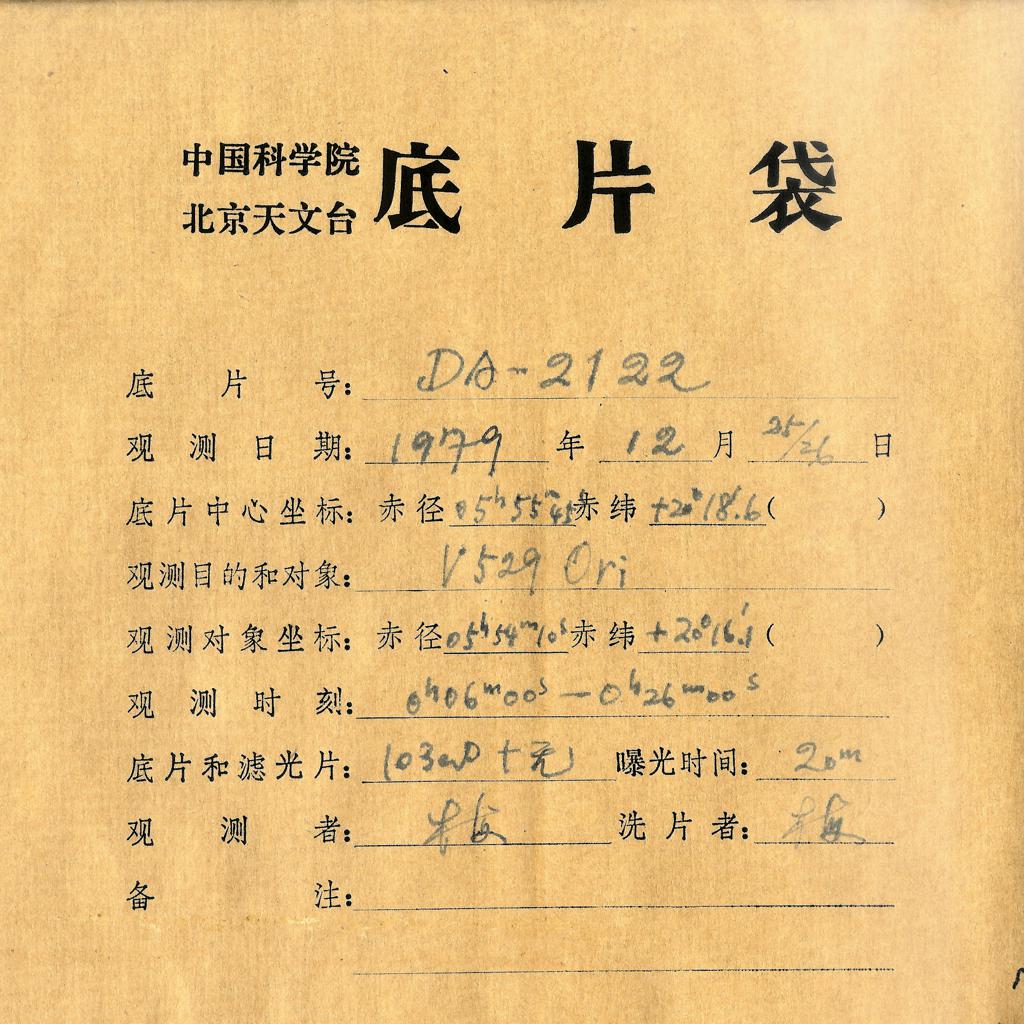 中国科学院
北京天文台
底片袋
底片号: DA-2122
观测日期: 1979年12月25/26日
底片中心坐标: 赤径05h55m45s赤纬+20°18'.6( )
观测目的和对象: V529 Ori
观测对象坐标: 赤径05h54m10s赤纬+20°16'.1( )
观测时刻: 0h06m00s—0h26m00s
底片和滤光片: 103aO+无 曝光时间: 20m
观测者: 梅 洗片者: 梅
备注: